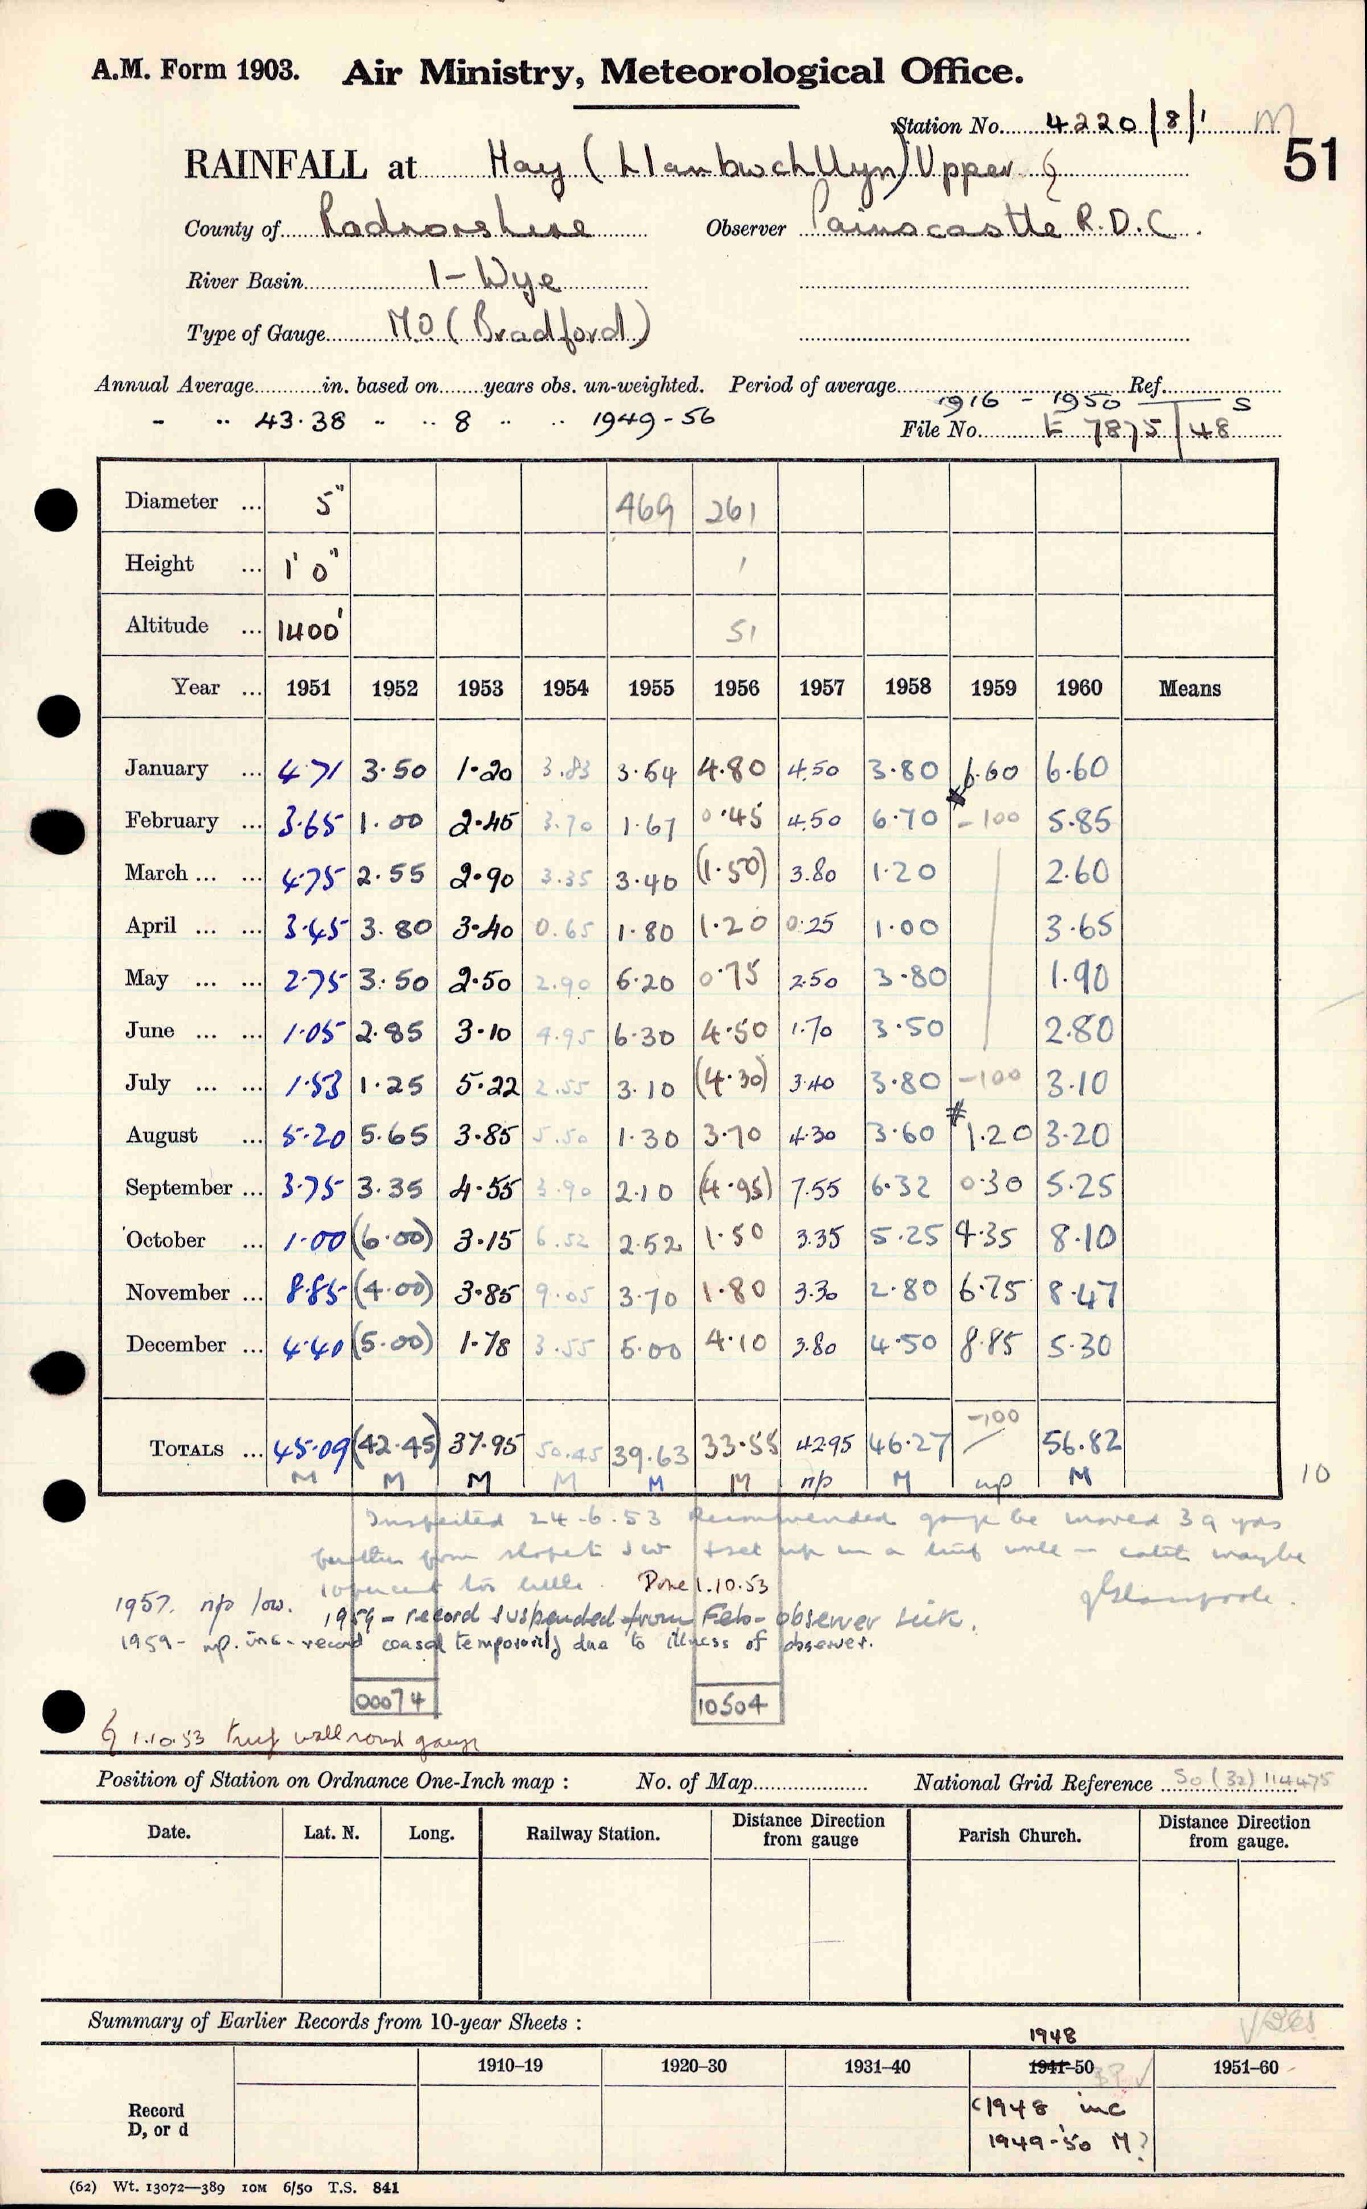 A.M. Form 1903. Air Ministry, Meteorological Office.
Station No. 4220/8/1 M
51
RAINFALL at Hay (Llanbwchllyn) Upper
County of Radnorshire Observer Painscastle R.D.C.
River Basin 1 - Wye
Type of Gauge M.O. (Bradford)
Annual Average in. based on years obs. un-weighted. Period of average Ref.
1916 - 1950 S
- " 43.38 " " 8 " " 1949-56 File No. E 7875/48
Diameter ... 5" 469 261
Height ... 1' 0" 1
Altitude ... 1400' 51
Year ... 1951 1952 1953 1954 1955 1956 1957 1958 1959 1960 Means
January ... 4.71 3.50 1.20 3.83 3.54 4.80 4.50 3.80 6.60 6.60
February ... 3.65 1.00 2.45 3.70 1.67 0.45 4.50 6.70 -100 5.85
March ... ... 4.75 2.55 2.90 3.35 3.40 (1.50) 3.80 1.20 2.60
April ... ... 3.45 3.80 3.40 0.65 1.80 1.20 0.25 1.00 3.65
May ... ... 2.75 3.50 2.50 2.90 6.20 0.75 2.50 3.80 1.90
June ... ... 1.05 2.85 3.10 4.95 6.30 4.50 1.70 3.50 2.80
July ... ... 1.53 1.25 5.22 2.55 3.10 (4.30) 3.40 3.80 -100 3.10
August ... 5.20 5.65 3.85 5.50 1.30 3.70 4.30 3.60 # 1.20 3.20
September ... 3.75 3.35 4.55 3.90 2.10 (4.95) 7.55 6.32 0.30 5.25
October ... 1.00 (6.00) 3.15 6.52 2.52 1.50 3.35 5.25 4.35 8.10
November ... 8.85 (4.00) 3.85 9.05 3.70 1.80 3.30 2.80 6.75 8.47
December ... 4.40 (5.00) 1.78 3.55 6.00 4.10 3.80 4.50 8.85 5.30
-100
TOTALS ... 45.09 (42.45) 37.95 50.45 39.63 33.55 42.95 46.27 56.82
M M M M M M np M np M
10
Inspected 24.6.53 Recommended gauge be moved 39 yds
further from slope to SW & set up in a turf wall - catch maybe
10 percent too little. Done 1.10.53
1957. np low. 1959 - record suspended from Feb - observer sick.
1959 - np. inc - record ceased temporarily due to illness of observer.
00074 10504
1.10.53 turf wall round gauge
Position of Station on Ordnance One-Inch map : No. of Map National Grid Reference SO (32) 114475
Date. Lat. N. Long. Railway Station. Distance Direction from gauge Parish Church. Distance Direction from gauge.
Summary of Earlier Records from 10-year Sheets :
1948
1910–19 1920–30 1931–40 1941-50 1951–60
Record
D, or d
<1948 inc
1949-50 M?
(62) Wt. 13072—389 10M 6/50 T.S. 841